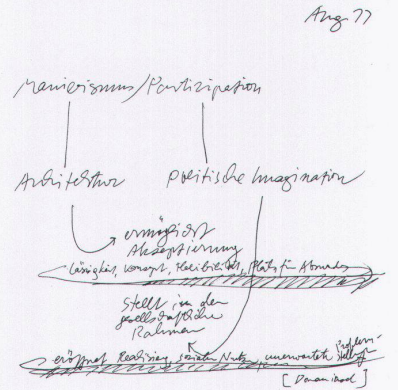 Aug 77
Manierismus/Partizipation
Architektur politische Imagination
ermöglicht
Akzeptierung
Lässigkeit, Konzept, Flexibilität, Platz für Absurdes
Stellt in den
gesellschaftlichen
Rahmen
eröffnet Realising, sozialen Nutz, unerwartete Problem-
stellung